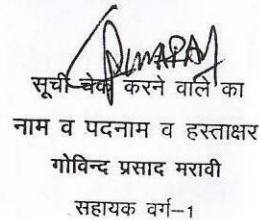 सूची चेक करने वाले का
नाम व पदनाम व हस्ताक्षर
गोविन्द प्रसाद मरावी
सहायक वर्ग–1